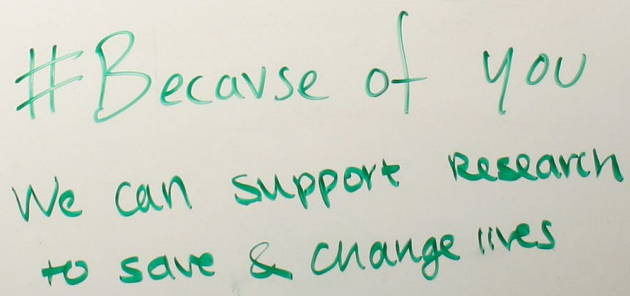 #Because of you
We can support Research
to save & change lives